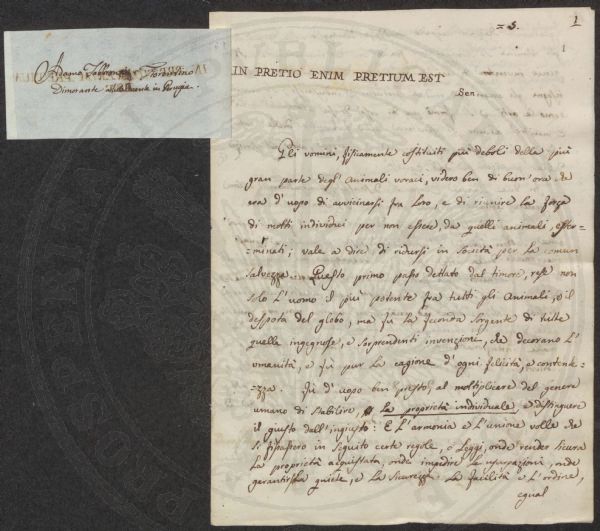 Adamo Fabbroni Fiorentino
Dimorante attualmente in Perugia.
= 5.
1
IN PRETIO ENIM PRETIUM EST
Sen
Gli vomini, fisicamente costituiti più deboli della più
gran parte degl' animali voraci, videro ben di buon' ora che
era d' uopo di avvicinarsi fra loro, e di riunire la forza
di molti individui per non essere, da quelli animali, ester=
=minati; vale a dire di ridursi in Società per la comun
salvezza. Questo primo passo dettato dal timore, rese non
solo L' uomo il più potente fra tutti gli Animali, o il
despota del globo, ma fù la feconda sorgente di tutte
quelle ingegnose, e sorprendenti invenzioni, che decorano L'
vmanità, e fù pur la cagione d' ogni felicità, e contente=
=zza. Fù d' vopo ben presto, al moltiplicare del genere
umano di stabilire, la proprietà individuale, e distinguere
il giusto dall' ingiusto: E L' armonia e L' unione volle che
si fissassero in seguito certe regole, o Leggi, onde render sicura
La proprietà acquistata, onde impedire le usurpazioni, onde
garantir la quiete, e La sicurezza. La facilità e L' ordine,
egual